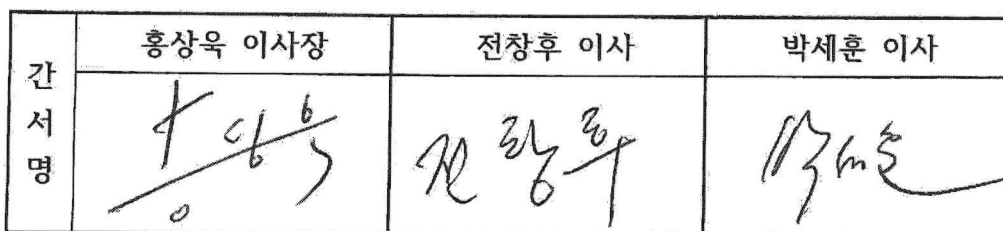 간서명
홍상욱 이사장 전창후 이사 박세훈 이사
전창후